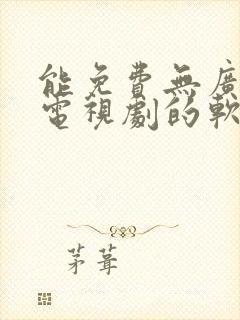 能免費無廣
電視劇的軟
茅葺